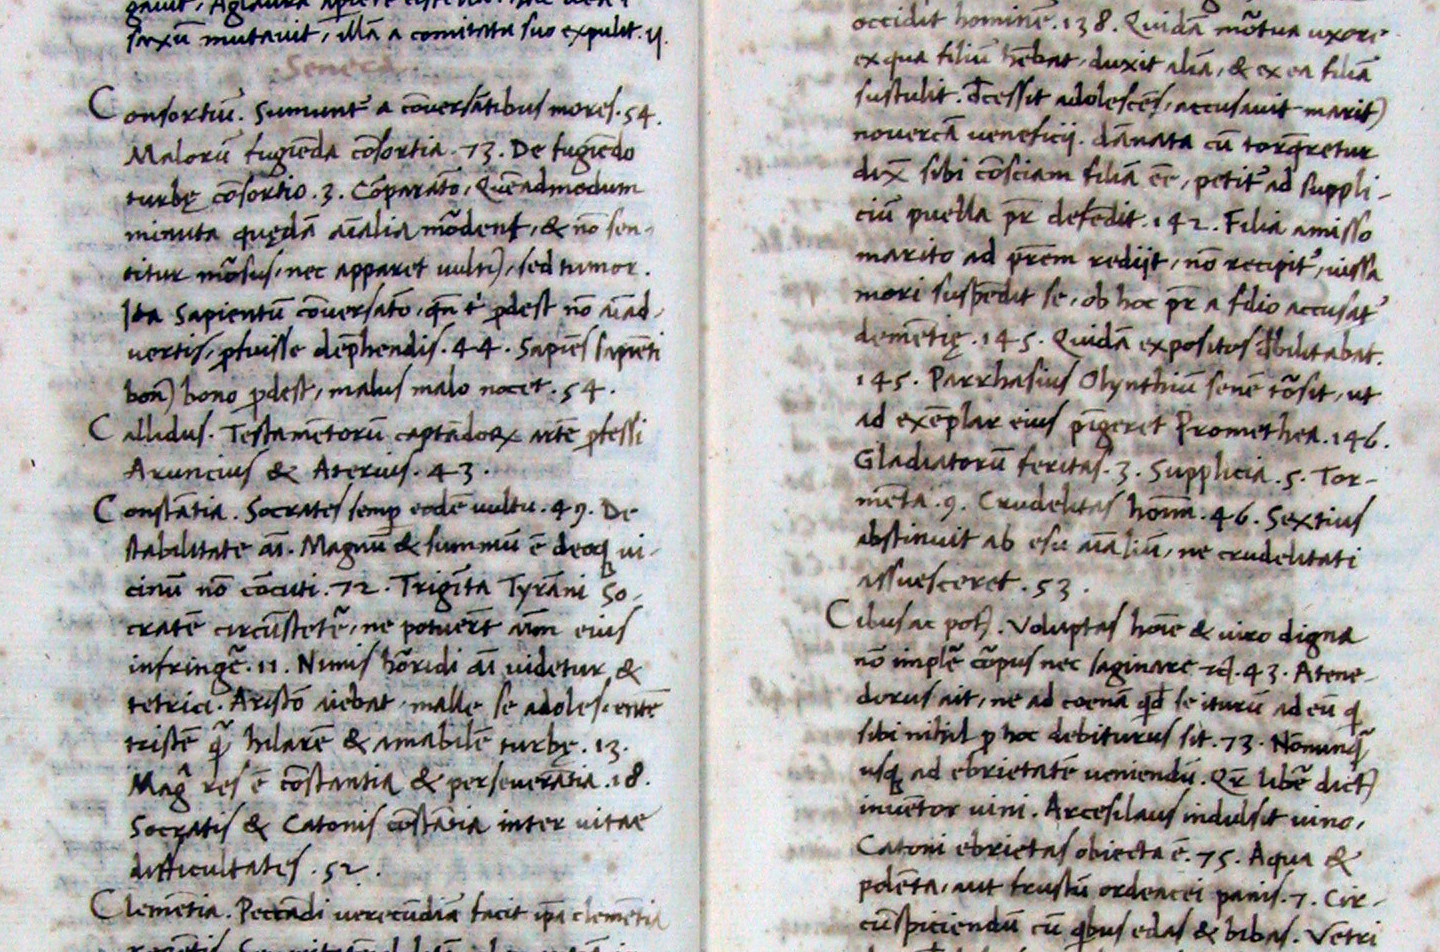 saxū mutauit, illā a comitatu suo expulit. 
Seneca.
Consortiū. Sumunt᷑ a cōuersātibus mores. 54.
Malorū fugiēda cōsortia. 73. De fugiēdo
turbę cōsortio. 3. Cōparatō, Quēadmodum
minuta quędā aīalia mōdent, & nō sen-
titur mōsus, nec apparet uulꝰ, sed tumor.
Ita Sapientū cōuersatō, qn̄ t' ꝓdest nō aīad-
uertis, ꝓfuisse dep̄hendis. 44. Sapiēs sapiēti
bonꝰ bono ꝓdest, malus malo nocet. 54.
Callidus. Testamētorū captādoꝝ artē ꝓfessi
Aruncius & Aterius. 43.
Constātia. Socrates semꝑ eodē uultu. 49. De
stabilitate aī. Magnū & summū ē deoqꝫ ui-
cinū nō cōcuti. 72. Trigīta Tyrāni So-
cratē circūstetē᷑, ne potuert̄ aīm eius
infringē᷑. 11. Nimis hōridi aī uidetur &
tetrici. Aristō aiebat, malle se adolescentē
tristē q̄᷑ hilarē & amabilē turbę. 13.
Mag᷑ res ē cōstantia & perseueratia. 18.
Socratis & Catonis cōstātia inter uitae
difficultates. 52.
Clemētia. Peccādi uerecūdiā facit ip̄a clemētia
occidit hominē. 138. Quidā mō᷑tua uxore
ex qua filiū hēbat, duxit aliā, & ex ea filiā
sustulit. D̄cessit adolescēs, accusauit maritꝰ
nouercā ueneficij. dānata cū torq̄retur
dix̄ sibi cōsciam filiā eē, petit᷑ ad suppli-
ciū puella pr̄ defēdit. 142. Filia amisso
marito ad pr̄em redijt, nō recipit᷑, iussa
mori suspēdit se, ob hoc pr̄ a filio accusat᷑
demētię. 145. Quidā expositos d̄bilitabat.
145. Parrhasius Olynthiū senē tōsit, ut
ad exēplar eius pīgeret Promethea. 146.
Gladiatorū feritas. 3. Supplicia. 5. Tor-
mēta. 9. Crudelitas hoīm. 46. Sextius
abstinuit ab esu aīaliū, ne crudelitati
assuesceret. 53.
Cibus ac potꝰ. Voluptas hoīe & uiro digna
nō implē᷑ cōpus nec saginare 43. Atene-
dorus ait, ne ad coenā qd̄ se iturū ad eū q̄
sibi nihil ꝓ hoc debiturus sit. 73. Nōnunq̄
usqꝫ ad ebrietatē ueniendū. Qr̄ libē᷑ dictꝰ
inuētor uini. Arcesilaus indulsit uino,
Catoni ebrietas obiecta ē. 75. Aqua &
polēta, aut frustū ordeacei panis. 7. Cir-
cūspiciendū cū qbus edas & bibas. Vētri